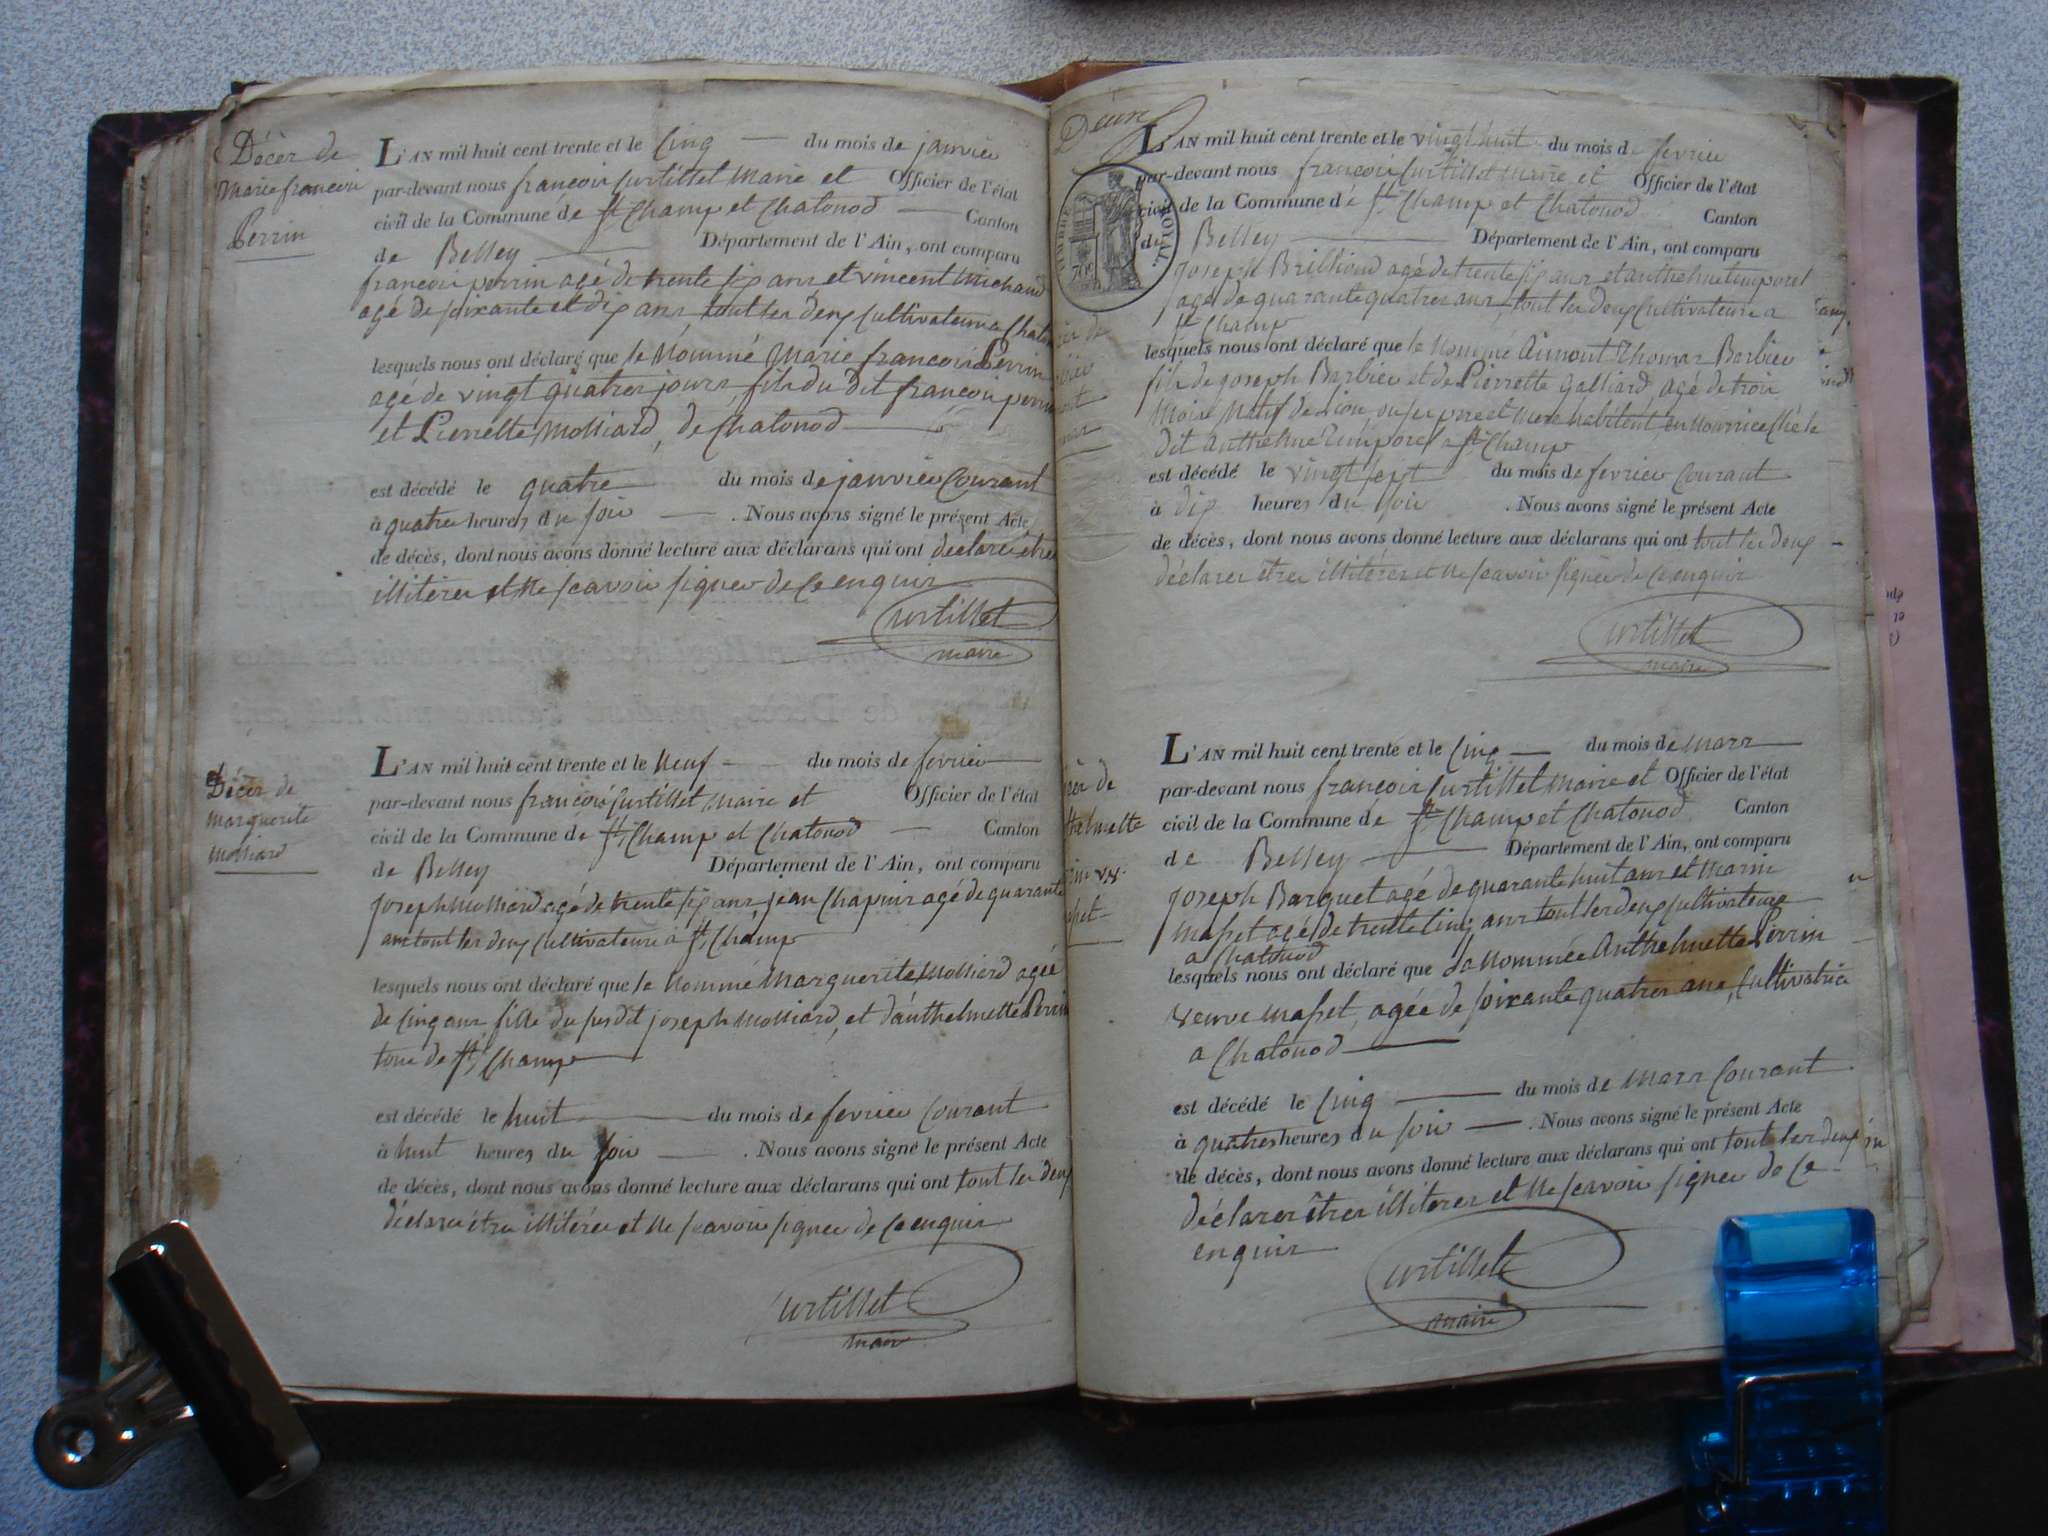 Décès de
marie francois
Perrin
L'AN mil huit cent trente et le Cinq du mois de janvier
par-devant nous francois Curtillet Maire et Officier de l'état
civil de la Commune de St. Champ et Chatonod Canton
de Belley Département de l'Ain, ont comparu
francois perrin agé de trente six ans et vincent Michaud
agé de soixante et dix ans, tout les deux Cultivateurs a Chato
lesquels nous ont déclaré que le Nommé Marie francois Perrin
agé de vingt quatres jours, fils du dit francois perrin
et Pierrette Molliard, de Chatonod
est décédé le quatre du mois de janvier Courant
à quatre heures du soir . Nous avons signé le présent Acte
de décès, dont nous avons donné lecture aux déclarans qui ont déclarer être
illitéres et Ne scavoir signer de Ce enquis
Curtillet
maire
Décès de
marguerite
Molliard
L'AN mil huit cent trente et le Neuf du mois de fevrier
par-devant nous francois Curtillet Maire et Officier de l'état
civil de la Commune de St. Champ et Chatonod Canton
de Belley Département de l'Ain, ont comparu
joseph Molliard agé de trente six ans, jean Chapuis agé de quarante
ans tout les deux Cultivateurs à St. Champ
lesquels nous ont déclaré que le Nommé Marguerite Molliard agée
de Cinq ans fille du susdit joseph Molliard, et d'anthelmette Perrin
tous de St. Champ
est décédé le huit du mois de fevrier Courant
à huit heures du soir . Nous avons signé le présent Acte
de décès, dont nous avons donné lecture aux déclarans qui ont tout les deux
déclarer être illitéres et Ne scavoir signer de Ce enquis
Curtillet
maire
TIMBRE ROYAL
70c
L'AN mil huit cent trente et le vingt huit du mois de fevrier
par-devant nous francois Curtillet Maire et Officier de l'état
civil de la Commune de St. Champ et Chatonod Canton
de Belley Département de l'Ain, ont comparu
joseph Brillioud agé de trente six ans et anthelme temporel
agé de quarante quatres ans, tout les deux Cultivateurs a
St. Champ
lesquels nous ont déclaré que le Nommé Aimont Thomas Barbier
fils de joseph Barbier et de Pierrette Galliard, agé de trois
Mois, Natif de Lion, ou ses pere et Mere habitent, en Nourrice Ché le
dit anthelme Temporel a St. Champ
est décédé le vingt sept du mois de fevrier Courant
à dix heures du soir . Nous avons signé le présent Acte
de décès, dont nous avons donné lecture aux déclarans qui ont tout les deux
déclarer etres illitéres et Ne scavoir signer de Ce enquis
Curtillet
maire
L'AN mil huit cent trente et le Cinq du mois de Mars
par-devant nous francois Curtillet Maire et Officier de l'état
civil de la Commune de St. Champ et Chatonod Canton
de Belley Département de l'Ain, ont comparu
joseph Barquet agé de quarante huit ans et Marin
Masset agé de trente Cinq ans tout les deux Cultivateurs
a Chatonod
lesquels nous ont déclaré que la Nommée Anthelmette Perrin
veuve Masset, agée de soixante quatres ans, Cultivatrice
a Chatonod
est décédé le Cinq du mois de Mars Courant
à quatres heures du soir . Nous avons signé le présent Acte
de décès, dont nous avons donné lecture aux déclarans qui ont tout les deux
déclarer êtres illitéres et Ne scavoir signer de Ce
enquis
Curtillet
maire